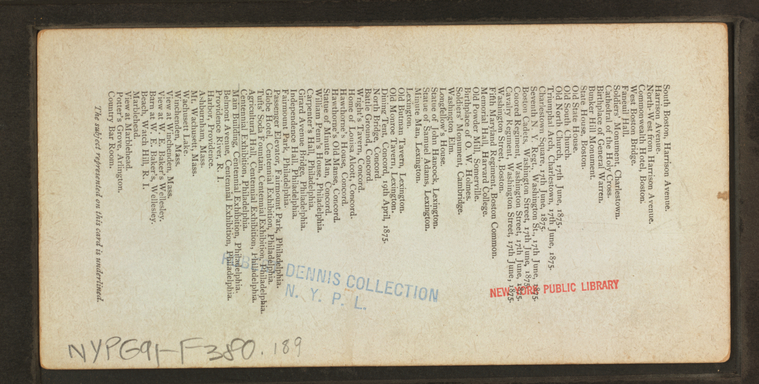 South Boston, Harrison Avenue.
Harrison Avenue.
North-West from Harrison Avenue.
Commonwealth Hotel, Boston.
West Boston Bridge.
Faneuil Hall.
Soldiers' Monument, Charlestown.
Cathedral of the Holy Cross.
Birthplace of General Warren.
Bunker Hill Monument.
State House, Boston.
Old State House.
Old South Church.
Old North Church, 17th June, 1875.
Triumphal Arch, Charlestown, 17th June, 1875.
Charlestown Square, 17th June, 1875.
Seventh N. Y. Regt., Washington St., 17th June, 1875.
Boston Cadets, Washington Street, 17th June, 1875.
Colored Regiment, Washington Street, 17th June, 1875.
Cavalry Regiment, Washington Street, 17th June, 1875.
Washington Street, Boston.
Fifth Maryland Regiment, Boston Common.
Memorial Hall, Harvard College.
Old Powder House, Somerville.
Birthplace of O. W. Holmes.
Soldiers' Monument, Cambridge.
Washington Elm.
Longfellow's House.
Statue of John Hancock, Lexington.
Statue of Samuel Adams, Lexington.
Minute Man, Lexington.
Lexington.
Old Butman Tavern, Lexington.
Old Munroe Tavern, Lexington.
Dining Tent, Concord, 19th April, 1875.
North Bridge, Concord.
Battle Ground, Concord.
Wright's Tavern, Concord.
Home of Louisa Alcott, Concord.
Hawthorne's House, Concord.
Hawthorne's Old Manse, Concord.
Statue of Minute Man, Concord.
William Penn's House, Philadelphia.
Carpenter's Hall, Philadelphia.
Girard Avenue Bridge, Philadelphia.
Independence Hall, Philadelphia.
Fairmount Park, Philadelphia.
Passenger Elevator, Fairmount Park, Philadelphia.
Globe Hotel, Centennial Exhibition, Philadelphia.
Tufts' Soda Fountain, Centennial Exhibition, Philadelphia.
Agricultural Hall, Centennial Exhibition, Philadelphia.
Centennial Exhibition, Philadelphia.
Main Building, Centennial Exhibition, Philadelphia.
Belmont Avenue, Centennial Exhibition, Philadelphia.
Providence River, R. I.
Harbor, Providence, R. I.
Ashburnham, Mass.
Mt. Wachusett, Mass.
Wachusett Lake.
View in Winchendon, Mass.
Winchenden, Mass.
View at W. E. Baker's Wellesley.
Barn at W. E. Baker's, Wellesley.
Beach, Watch Hill, R. I.
Marblehead.
View at Marblehead.
Potter's Grove, Arlington.
Country Bar Room.
The subject represented on this card is underlined.
NEW YORK PUBLIC LIBRARY
DENNIS COLLECTION
N. Y. P. L.
NYPG91-F380.189